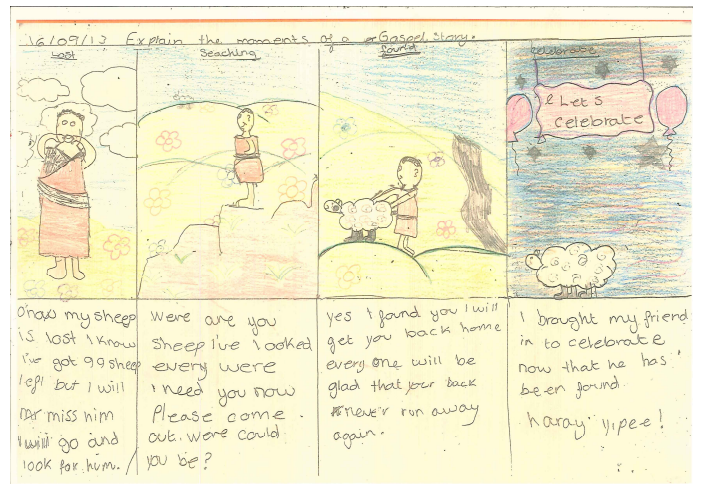 16/09/13 Explain the moments of a Gospel Story.
Lost
Seaching
found
Celebrate
Let's
celebrate
o now my sheep
is lost I know
I've got 99 sheep
left but I will
miss him
I will go and
look for him.
Were are you
sheep I've looked
every were
I need you now
Please come
out. were could
you be?
yes I found you I will
get you back home
every one will be
glad that your back
never run away
again.
I brought my friend
in to celebrate
now that he has
been found.
haray yipee!